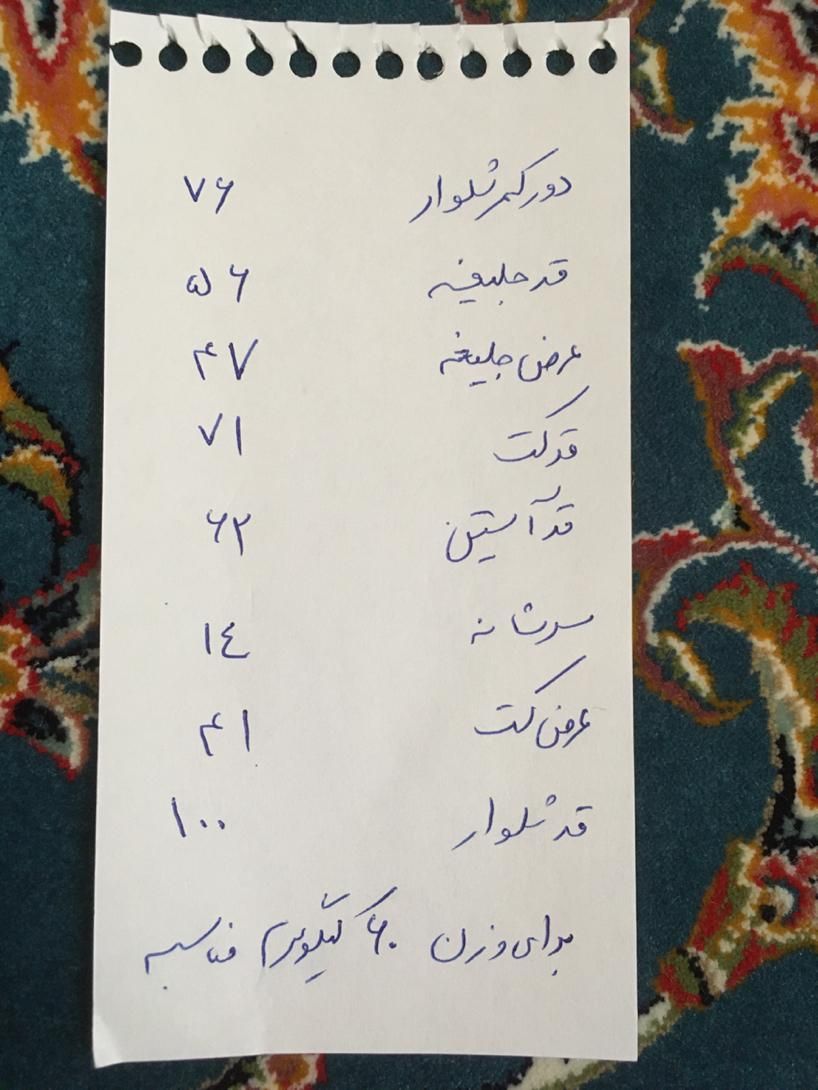 دور کمر شلوار ۷۶
قد جلیقه ۵۶
عرض جلیقه ۴۷
قد کت ۷۱
قد آستین ۶۲
سرشانه ۱۴
عرض کت ۴۱
قد شلوار ۱۰۰
برای وزن ۶۰ کیلوگرم مناسبه